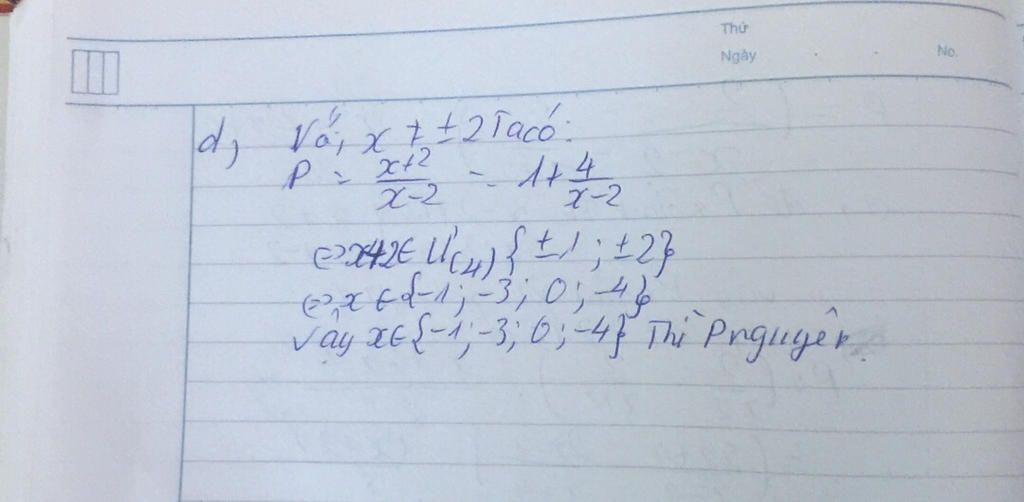 Thứ
Ngày . . No.
d, Với x ≠ ±2 Ta có:
P = \frac{x+2}{x-2} = 1 + \frac{4}{x-2}
⇔ x+2 ∈ Ư(4) {±1; ±2}
⇔ x ∈ {-1; -3; 0; -4}
Vậy x ∈ {-1; -3; 0; -4} Thì P nguyên.